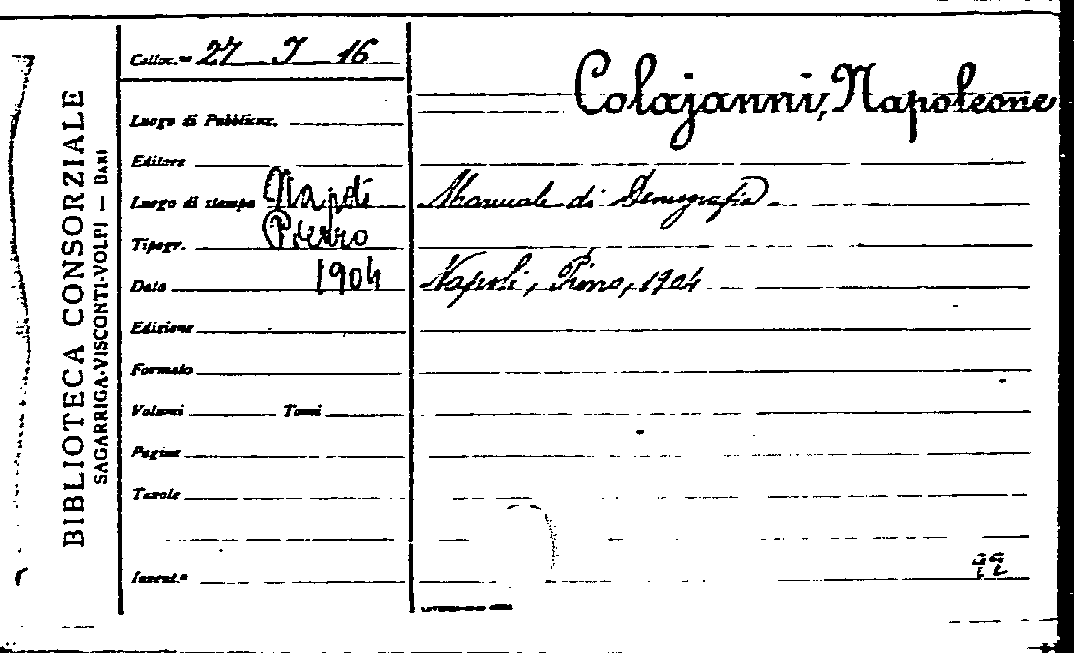 BIBLIOTECA CONSORZIALE
SAGARRIGA-VISCONTI-VOLPI — BARI
Colloc.ne 27 I 16
Luogo di Pubblicaz.
Editore
Luogo di stampa Napoli
Tipogr. Pierro
Data 1904
Edizione
Formato
Volumi Tomi
Pagine
Tavole
Invent.o
Colajanni, Napoleone
Manuale di Demografia
Napoli, Pierro, 1904